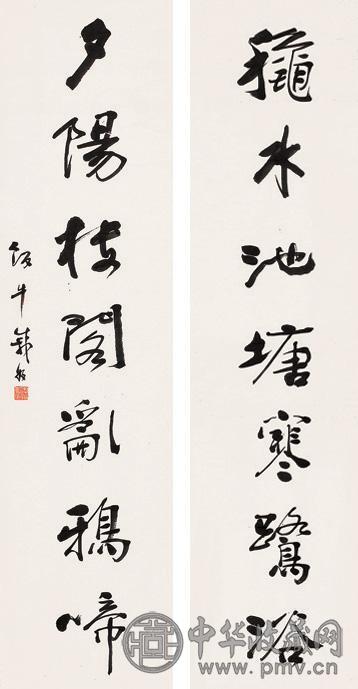 龝水池塘寒鷺浴
夕陽樓閣亂鴉啼
飯牛
中华收藏网
www.pmv.cn